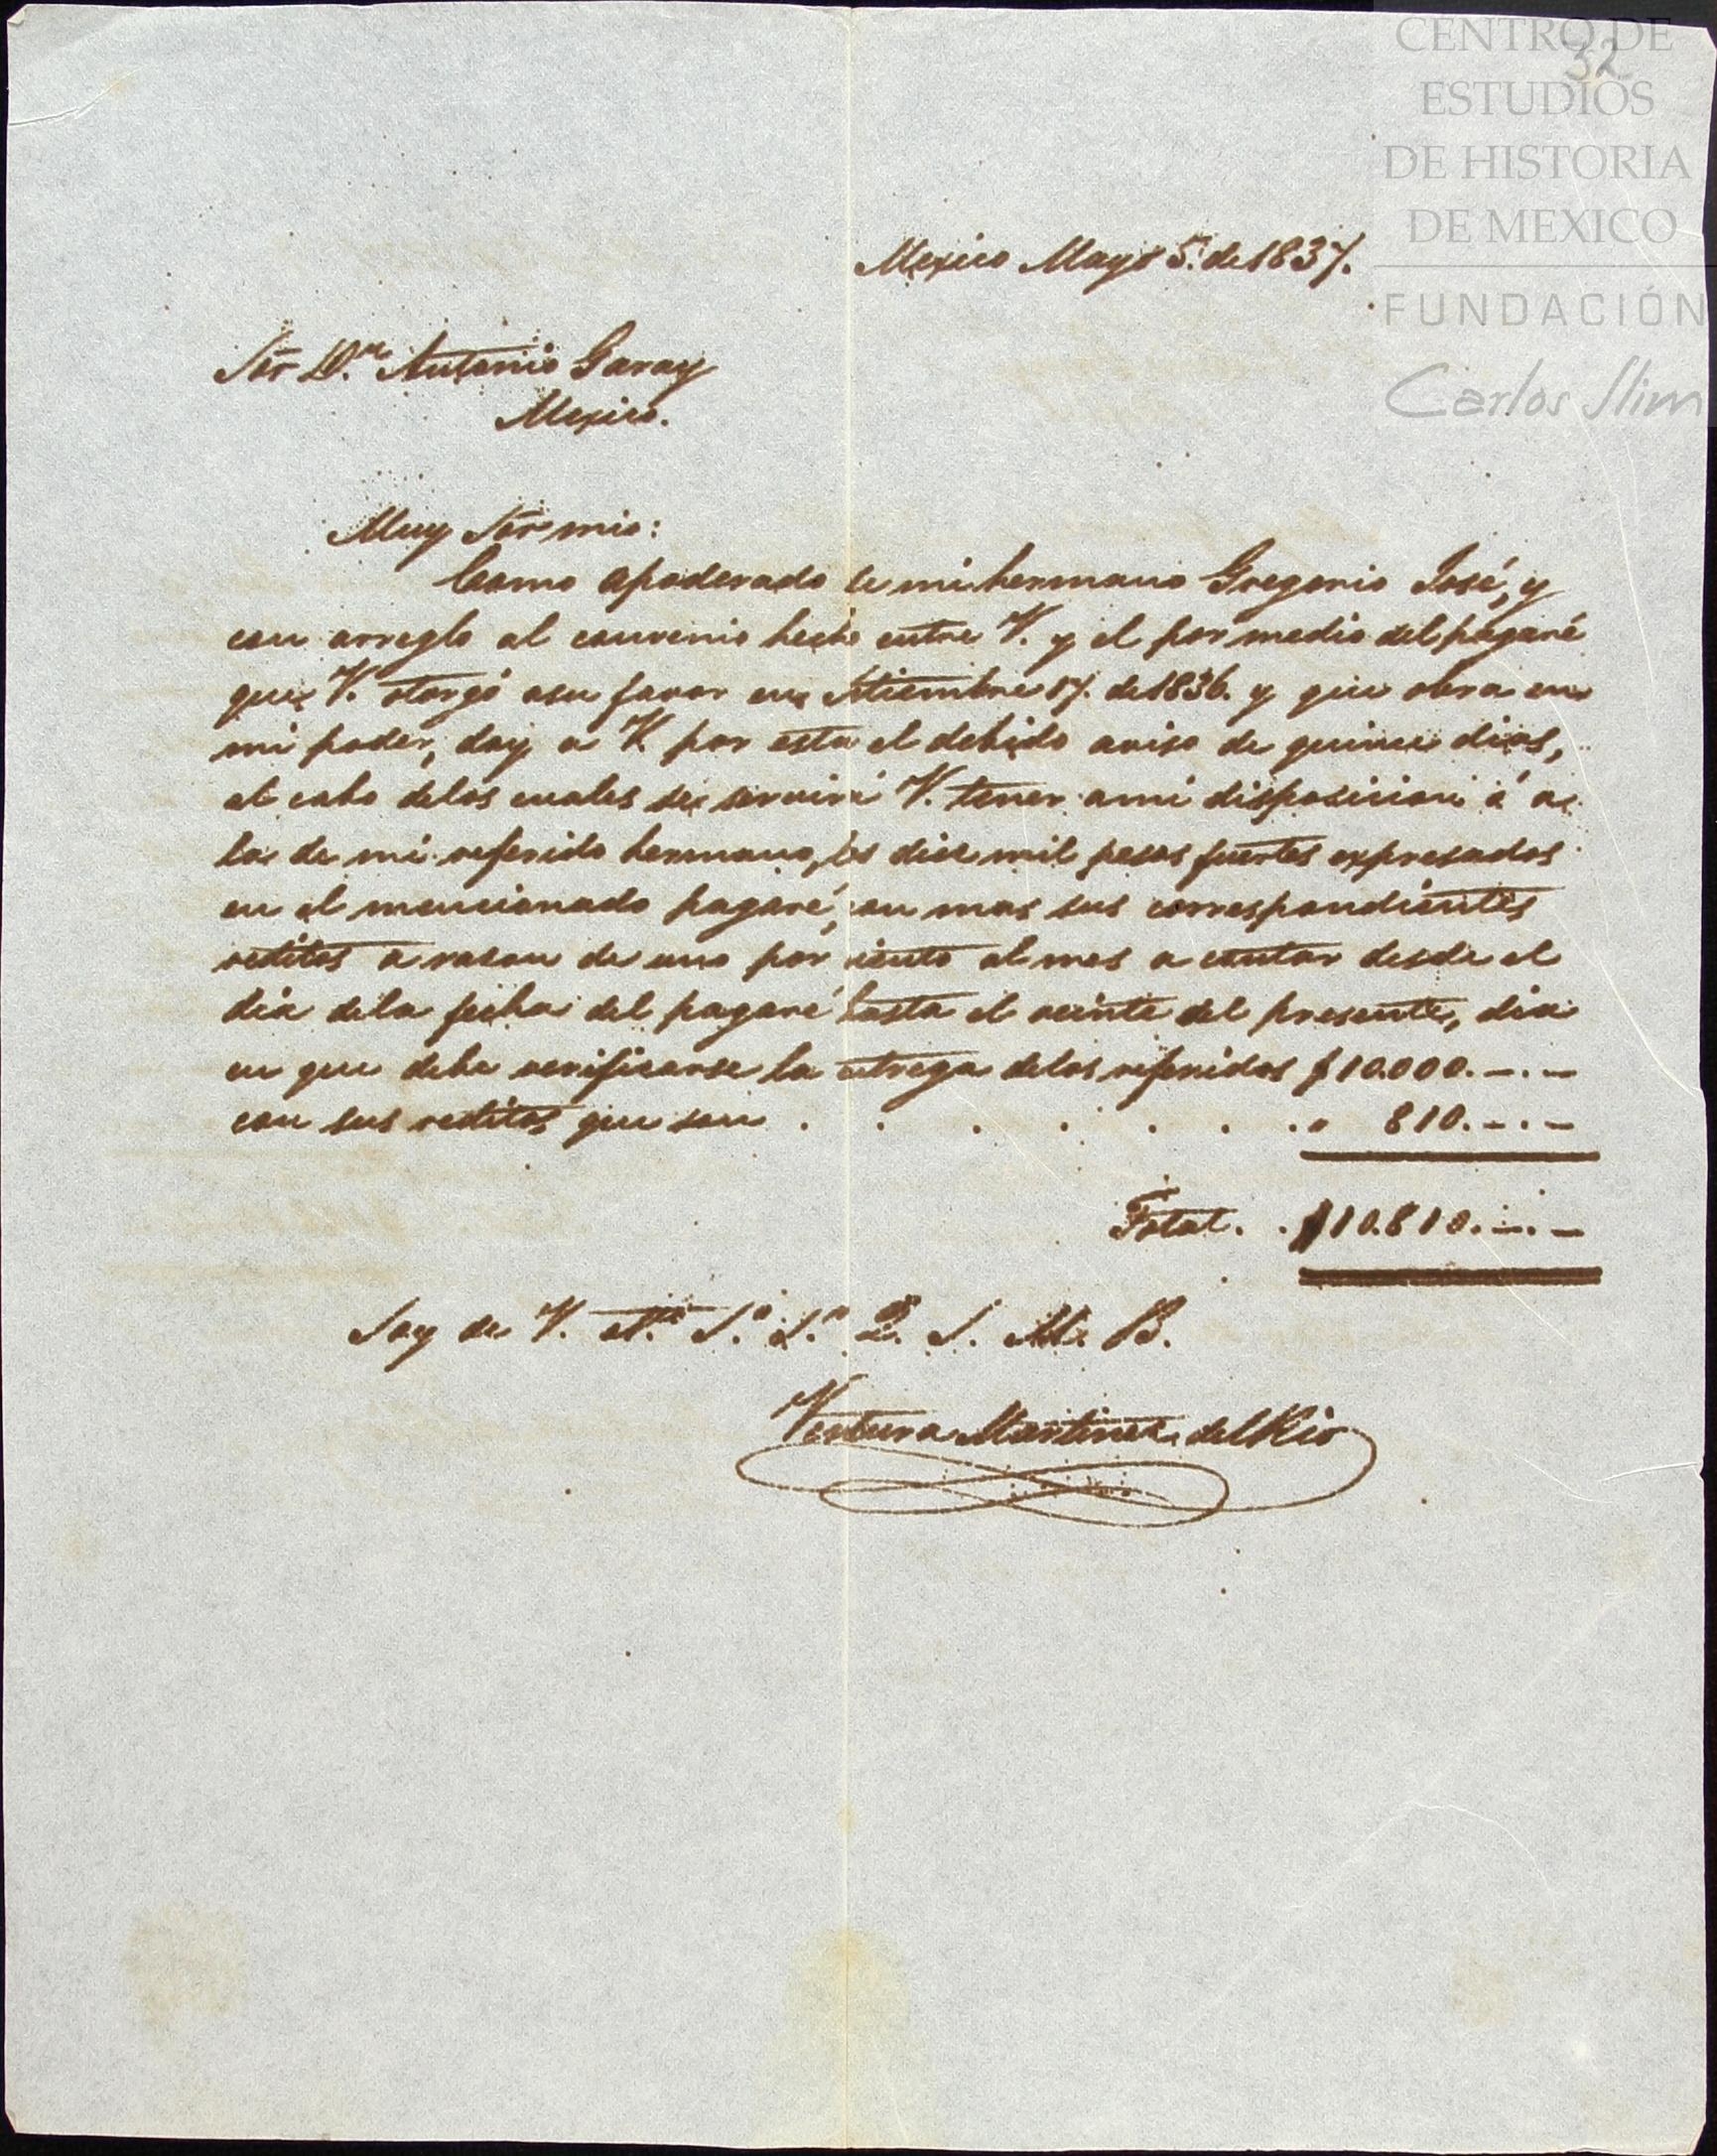 CENTRO DE
32
ESTUDIOS
DE HISTORIA
DE MEXICO
FUNDACIÓN
Carlos Slim
Mexico Mayo 5. de 1837.
Sor. Dn. Antonio Garay
Mexico.
Muy Sor mio:
Como apoderado de mi hermano Gregorio José, y
con arreglo al convenio hecho entre V. y el por medio del pagaré
que V. otorgó a su favor en Setiembre 17. de 1836. y que obra en
mi poder, doy a V. por esta el debido aviso de quince dias,
al cabo de los cuales se servirá V. tener a mi disposicion ó a
la de mi referido hermano, los diez mil pesos fuertes expresados
en el mencionado pagaré, con mas sus correspondientes
reditos a razon de uno por ciento al mes a contar desde el
dia de la fecha del pagaré hasta el veinte del presente, dia
en que debe verificarse la entrega de los referidos $10.000.-.-
con sus reditos, que son . . . . . . . . 810.-.-
Total. . $10.810.-.-
Soy de V. atto. So. So. Q. S. M. B.
Ventura Martinez del Rio